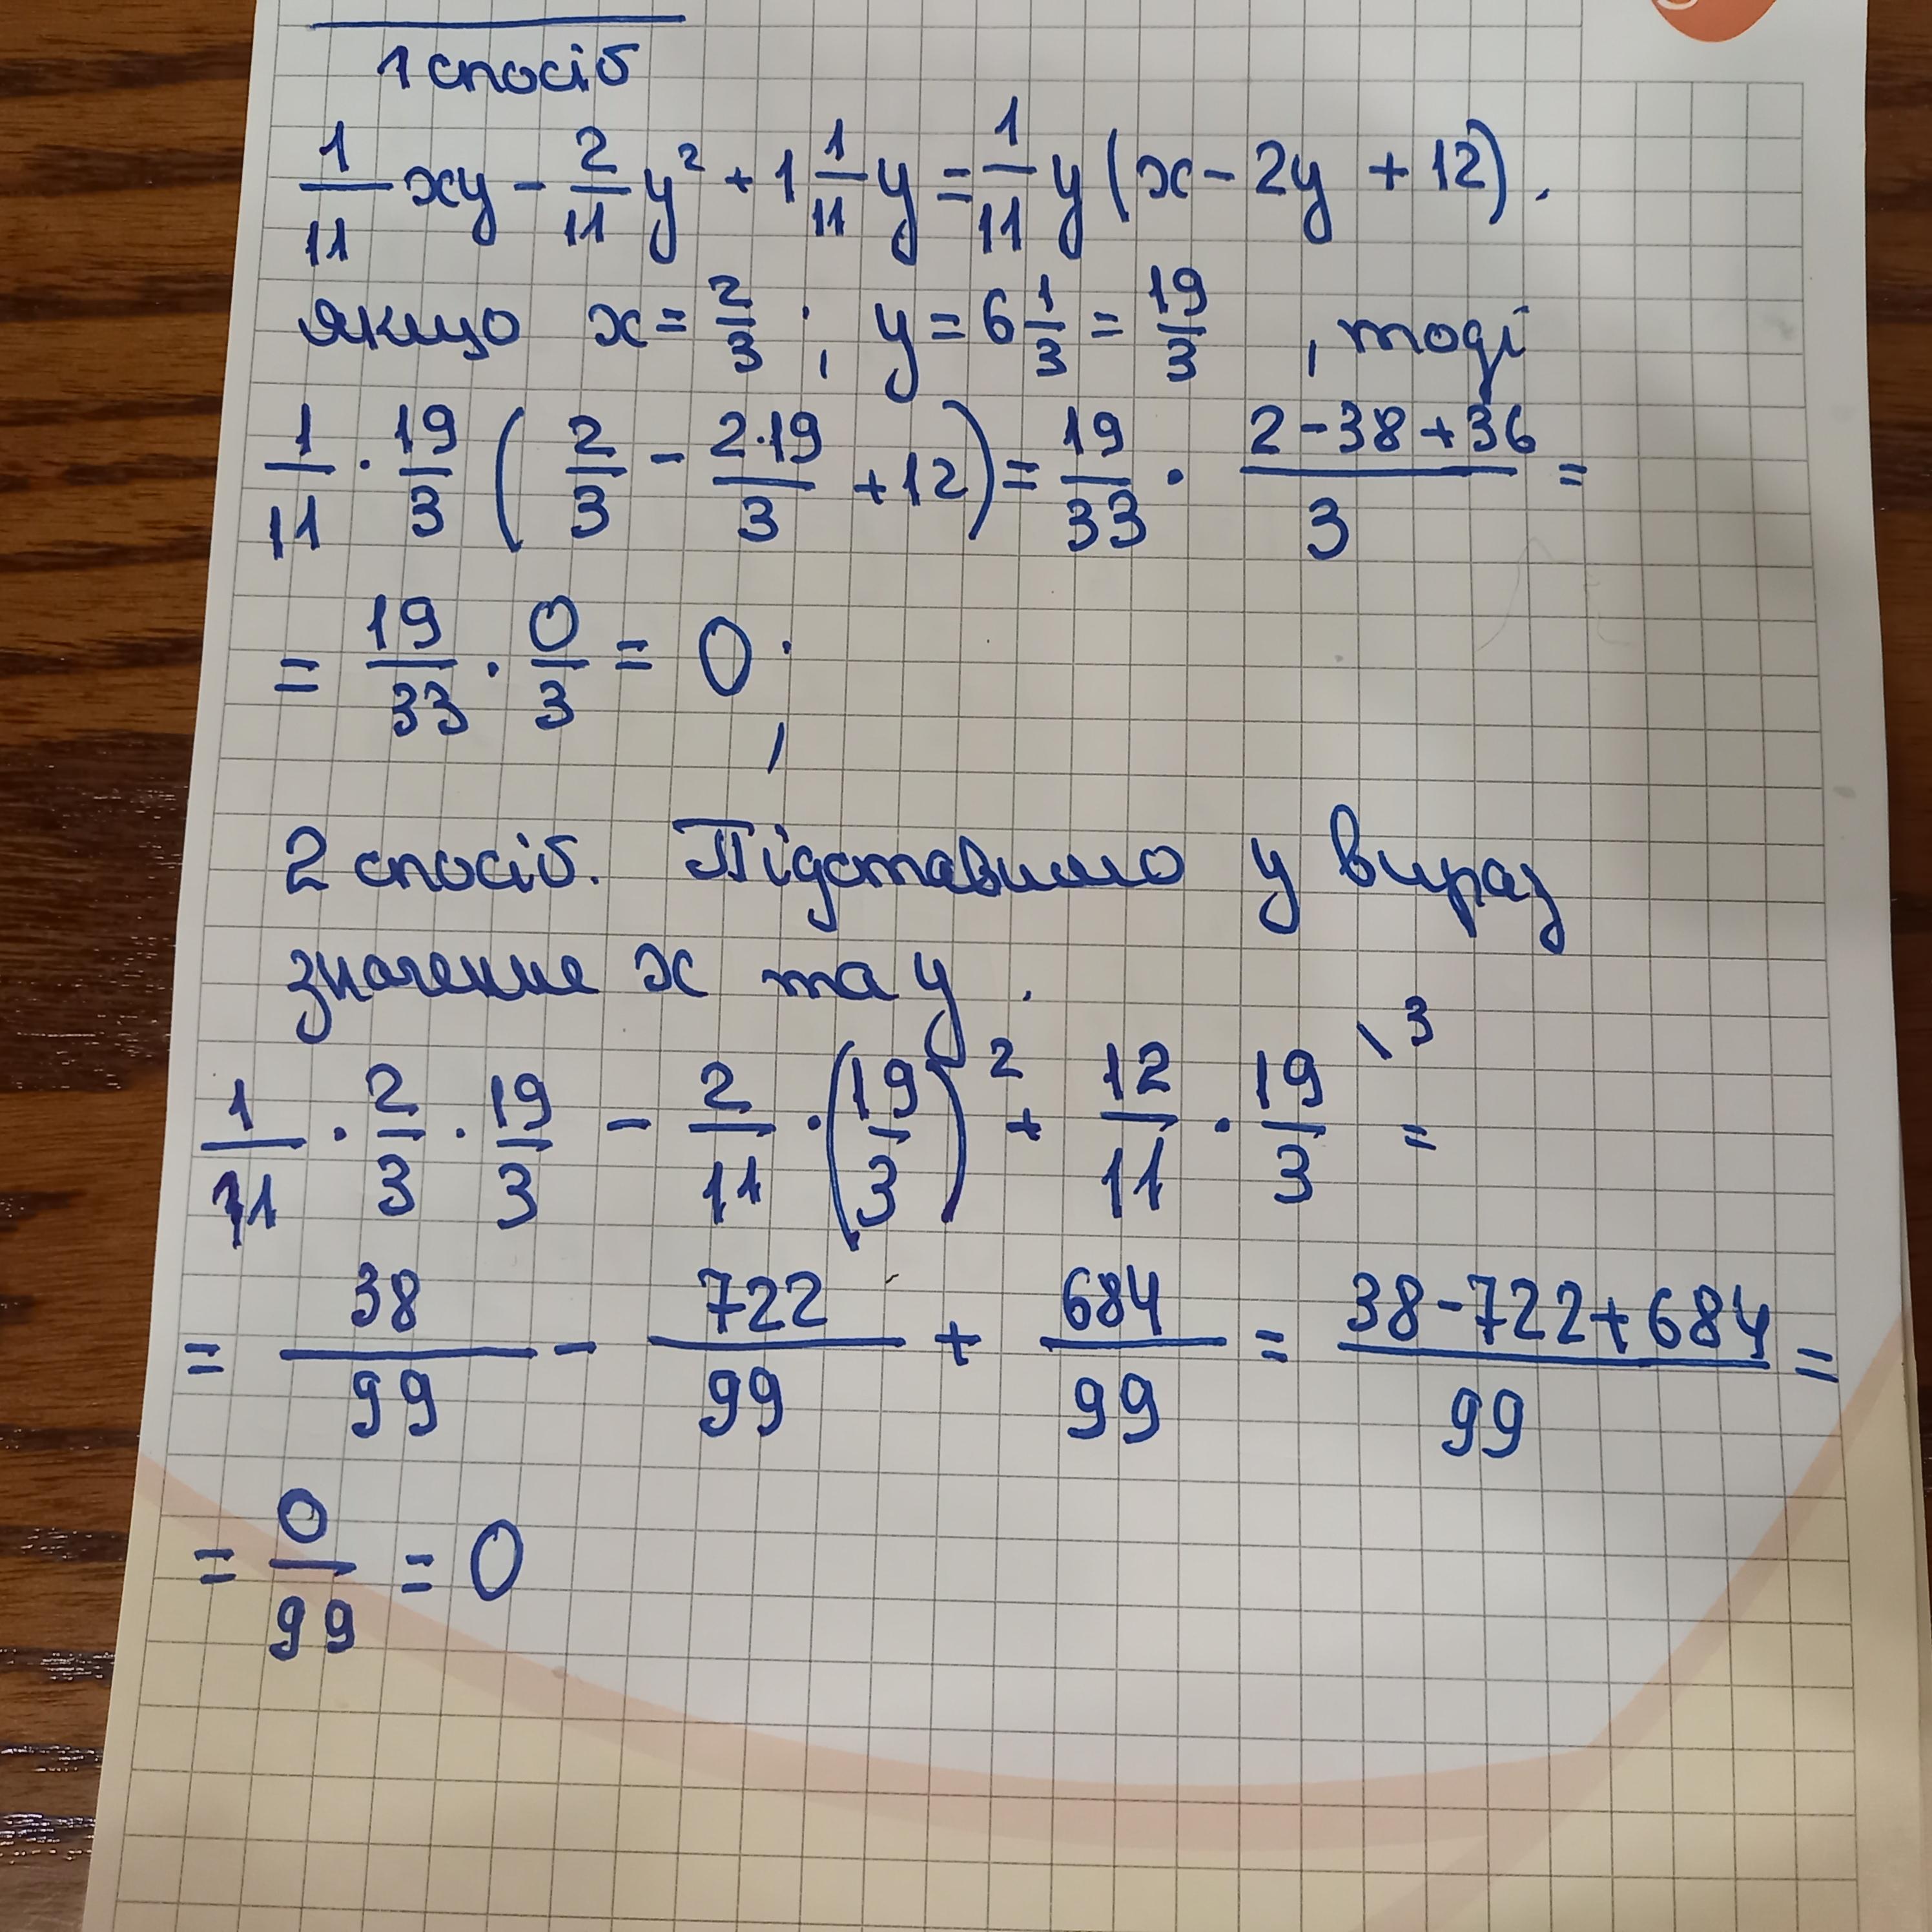 1 спосіб
1/11 xy - 2/11 y² + 1 1/11 y = 1/11 y (x - 2y + 12).
якщо x = 2/3 ; y = 6 1/3 = 19/3 , тоді
1/11 · 19/3 ( 2/3 - 2·19/3 + 12 ) = 19/33 · (2-38+36)/3 =
= 19/33 · 0/3 = 0 ;
2 спосіб. Підставимо у вираз
значение x та y .
1/11 · 2/3 · 19/3 - 2/11 · (19/3)² + 12/11 · 19/3 \3 =
= 38/99 - 722/99 + 684/99 = (38-722+684)/99 =
= 0/99 = 0